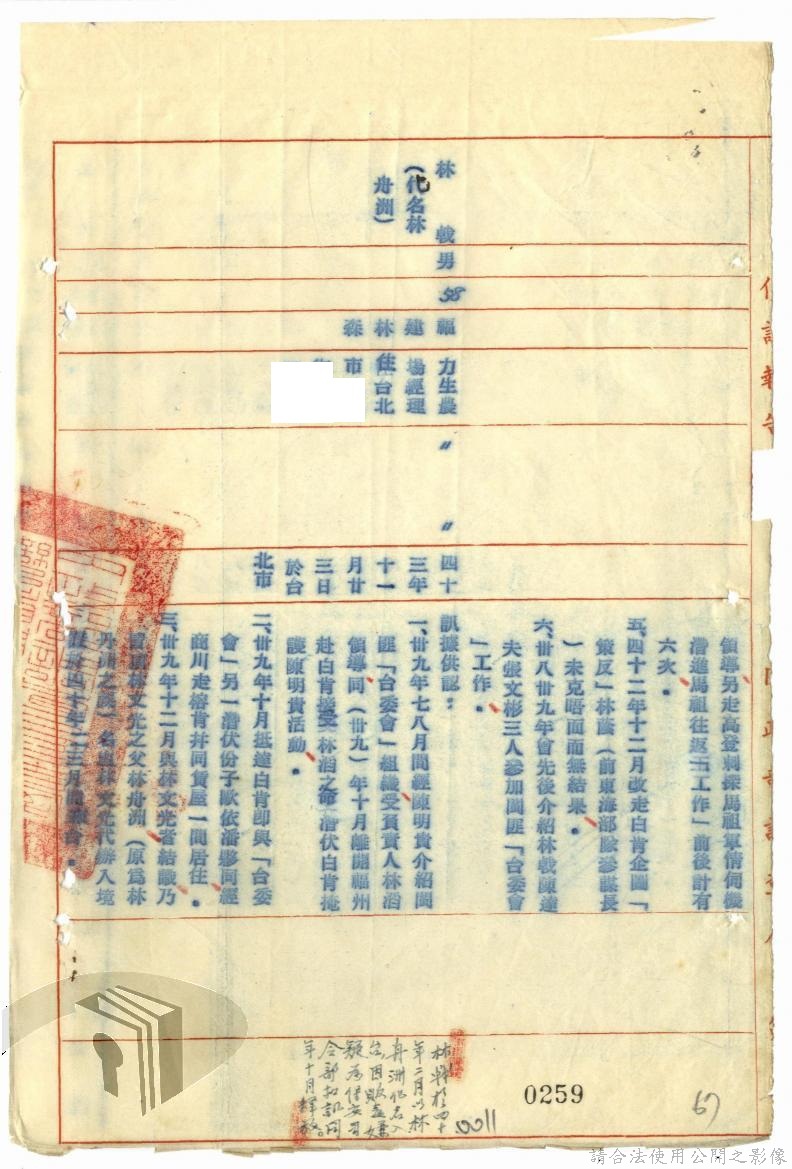 領導另走高登刺探馬祖軍情伺機
潛進馬祖往返「工作」前後計有
六次。
五、四十二年十二月改走白肯企圖「
策反」林蔭（前東海部隊參謀長
）未克晤面而無結果。
六、卅八卅九年會先後介紹林戟陳達
夫張文彬三人參加閩匪「台委會
」工作。
林戟
（化名林
舟洲）
男
58
福
建
林
森
力生農
場經理
住台北
市
〃
〃
四十
三年
十一
月廿
三日
於台
北市
訊據供認：
一、卅九年七八月間經陳明貴介紹閩
匪「台委會」組織受負責人林滔
領導同（卅九）年十月離開福州
赴白肯接受林滔之命潛伏白肯掩
護陳明貴活動。
二、卅九年十月抵達白肯即與「台委
會」另一潛伏份子歐依潘夥同經
商川走榕肯并同賃屋一間居住。
三、卅九年十二月與林文光者結識乃
冒頂林文光之父林舟洲（原為林
丹洲之誤）名由林文光代辦入境
林戟於四十
年二月以林
舟洲化名入
台因販
疑為保安司
令部扣訊同
年十月釋放
1100
0259
67
請合法使用公開之影像